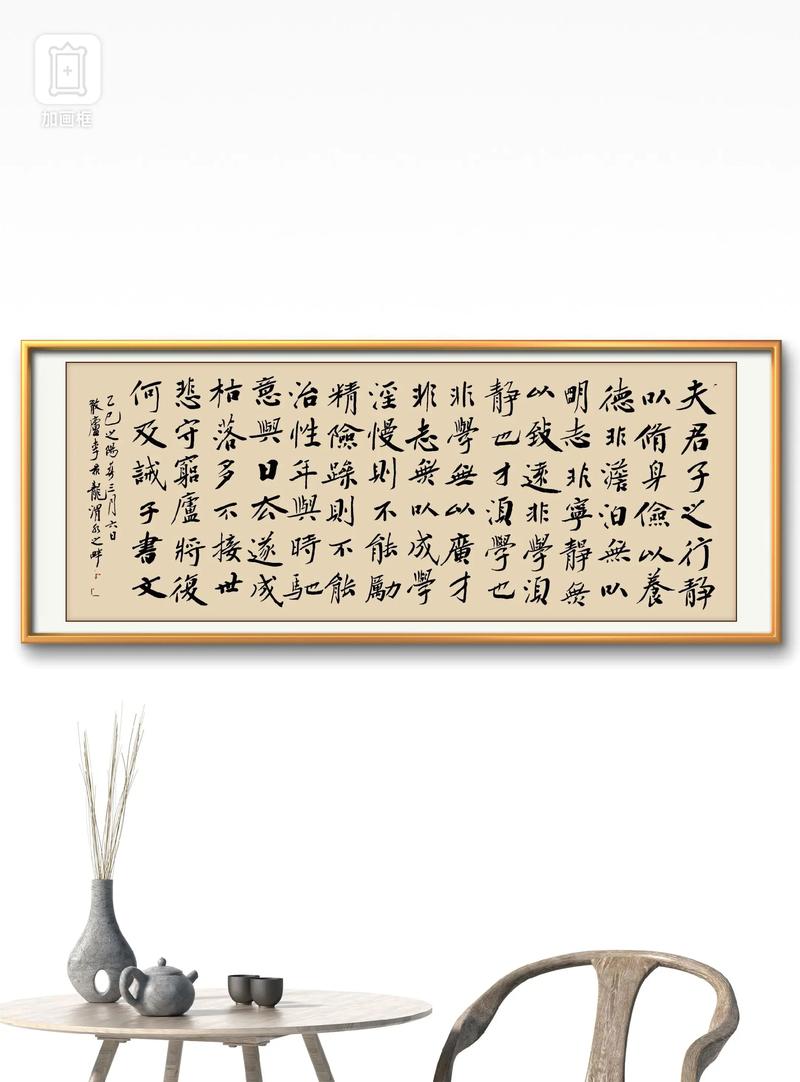 加画框
夫君子之行靜
以脩身儉以養
德非澹泊無以
明志非寧靜無
以致遠非學須
靜也才須學也
非學無以廣才
非志無以成學
淫慢則不能勵
精險躁則不能
治性年與時馳
意與日去遂成
枯落多不接世
悲守窮廬將復
何及誡子書文
乙巳之陽春三月六日
廬李龍渭水之畔